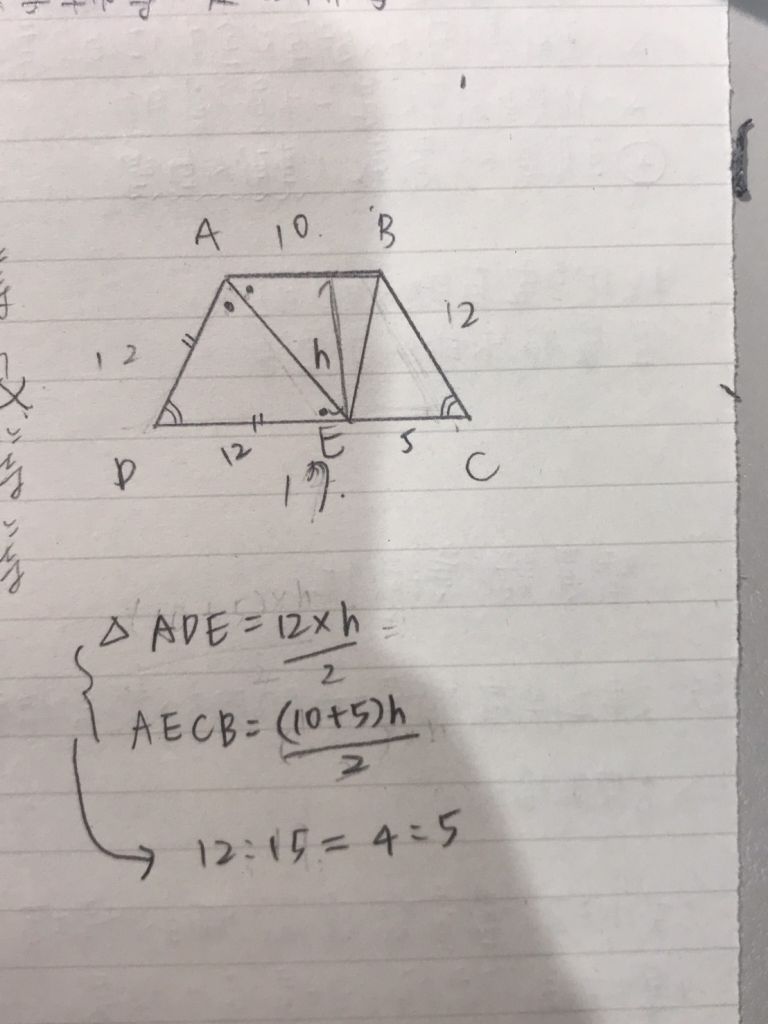 A 10. B
12
12
h
12 E 5
D 17. C
△ ADE = 12×h/2 =
AECB = (10+5)h/2
12:15 = 4:5